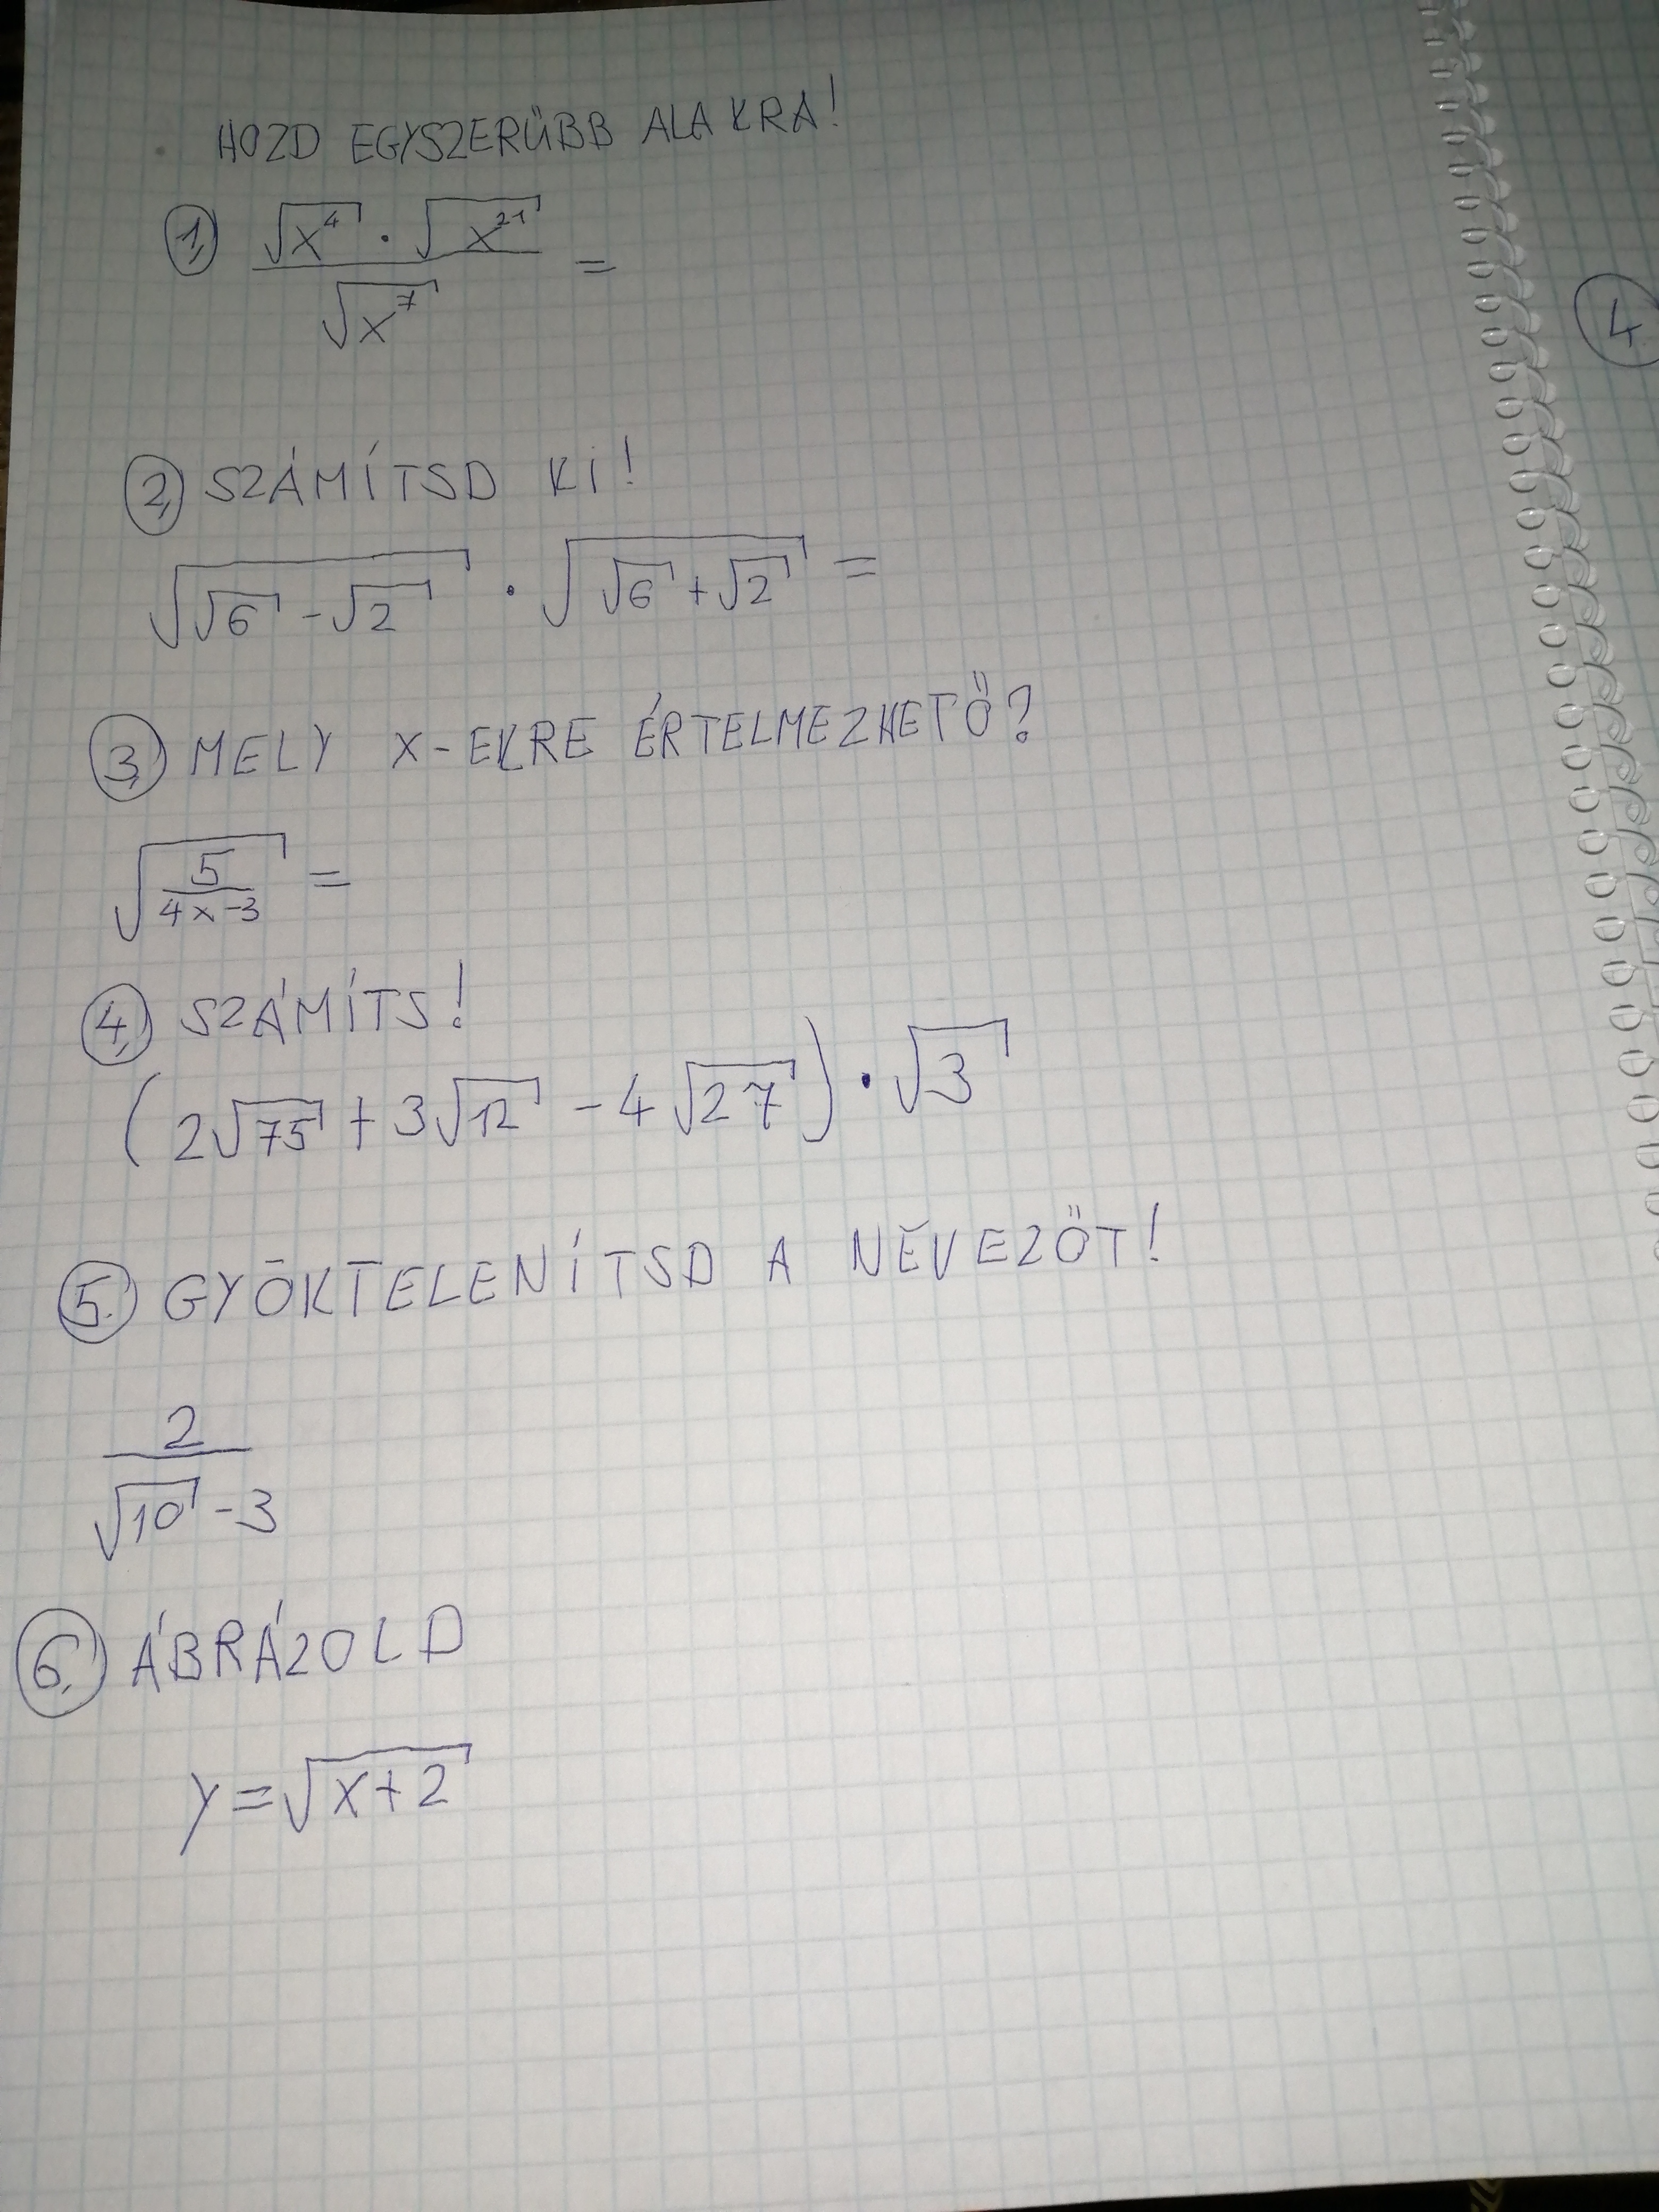 HOZD EGYSZERŰBB ALAKRA!
1, √x⁴ · √x²¹ / √x⁷ =
2, SZÁMÍTSD KI!
√(√6 - √2) · √(√6 + √2) =
3, MELY X-EKRE ÉRTELMEZHETŐ?
√(5 / (4x-3)) =
4, SZÁMÍTS!
(2√75 + 3√12 - 4√27) · √3
5. GYÖKTELENÍTSD A NĚVEZŐT!
2 / (√10 - 3)
6, ÁBRÁZOLD
y = √(x+2)
4